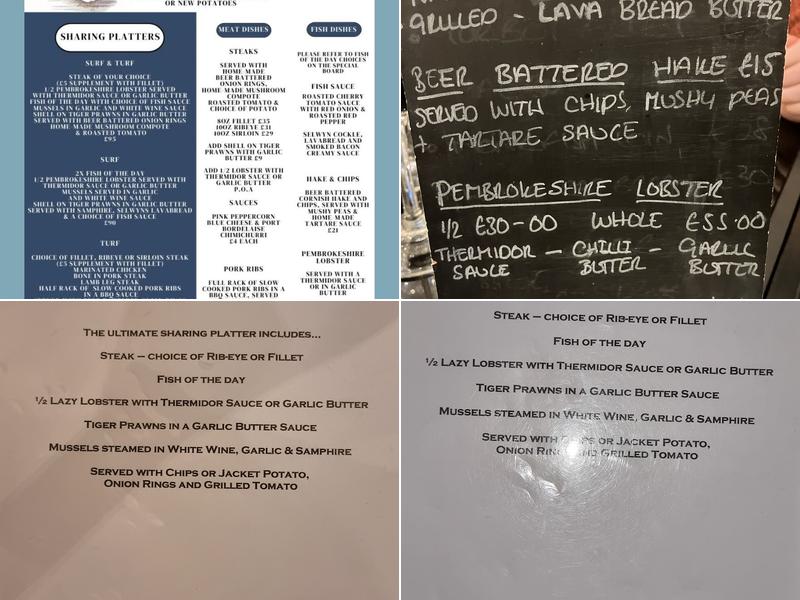 OR NEW POTATOES
SHARING PLATTERS
SURF & TURF
STEAK OF YOUR CHOICE
(£5 SUPPLEMENT WITH FILLET)
1/2 PEMBROKESHIRE LOBSTER SERVED
WITH THERMIDOR SAUCE OR GARLIC BUTTER
FISH OF THE DAY WITH CHOICE OF FISH SAUCE
MUSSELS IN GARLIC AND WHITE WINE SAUCE
SHELL ON TIGER PRAWNS IN GARLIC BUTTER
SERVED WITH BEER BATTERED ONION RINGS
HOME MADE MUSHROOM COMPOTE
& ROASTED TOMATO
£95
SURF
2X FISH OF THE DAY
1/2 PEMBROKESHIRE LOBSTER SERVED WITH
THERMIDOR SAUCE OR GARLIC BUTTER
MUSSELS SERVED IN GARLIC
AND WHITE WINE SAUCE
SHELL ON TIGER PRAWNS IN GARLIC BUTTER
SERVED WITH SAMPHIRE, SELWYNS LAVABREAD
& A CHOICE OF FISH SAUCE
£90
TURF
CHOICE OF FILLET, RIBEYE OR SIRLOIN STEAK
(£5 SUPPLEMENT WITH FILLET)
MARINATED CHICKEN
BONE IN PORK STEAK
LAMB LEG STEAK
HALF RACK OF SLOW COOKED PORK RIBS
IN A BBQ SAUCE
MEAT DISHES
STEAKS
SERVED WITH
HOME MADE
BEER BATTERED
ONION RINGS,
HOME MADE MUSHROOM
COMPOTE
ROASTED TOMATO &
CHOICE OF POTATO
8OZ FILLET £35
10OZ RIBEYE £31
10OZ SIRLOIN £29
ADD SHELL ON TIGER
PRAWNS WITH GARLIC
BUTTER £9
ADD 1/2 LOBSTER WITH
THERMIDOR SAUCE OR
GARLIC BUTTER
P.O.A
SAUCES
PINK PEPPERCORN
BLUE CHEESE & PORT
BORDELAISE
CHIMICHURRI
£4 EACH
PORK RIBS
FULL RACK OF SLOW
COOKED PORK RIBS IN A
BBQ SAUCE, SERVED
FISH DISHES
PLEASE REFER TO FISH
OF THE DAY CHOICES
ON THE SPECIAL
BOARD
FISH SAUCE
ROASTED CHERRY
TOMATO SAUCE
WITH RED ONION &
ROASTED RED
PEPPER
SELWYN COCKLE,
LAVABREAD AND
SMOKED BACON
CREAMY SAUCE
HAKE & CHIPS
BEER BATTERED
CORNISH HAKE AND
CHIPS, SERVED WITH
MUSHY PEAS &
HOME MADE
TARTARE SAUCE
£21
PEMBROKESHIRE
LOBSTER
SERVED WITH A
THERMIDOR SAUCE
OR IN GARLIC
BUTTER
GRILLED - LAVA BREAD BUTTER
BEER BATTERED HAKE £15
SERVED WITH CHIPS, MUSHY PEAS
+ TARTARE SAUCE
PEMBROKESHIRE LOBSTER
1/2 £30-00 WHOLE £55.00
THERMIDOR - CHILLI - GARLIC
SAUCE BUTTER BUTTER
THE ULTIMATE SHARING PLATTER INCLUDES...
STEAK – CHOICE OF RIB-EYE OR FILLET
FISH OF THE DAY
½ LAZY LOBSTER WITH THERMIDOR SAUCE OR GARLIC BUTTER
TIGER PRAWNS IN A GARLIC BUTTER SAUCE
MUSSELS STEAMED IN WHITE WINE, GARLIC & SAMPHIRE
SERVED WITH CHIPS OR JACKET POTATO,
ONION RINGS AND GRILLED TOMATO
STEAK – CHOICE OF RIB-EYE OR FILLET
FISH OF THE DAY
½ LAZY LOBSTER WITH THERMIDOR SAUCE OR GARLIC BUTTER
TIGER PRAWNS IN A GARLIC BUTTER SAUCE
MUSSELS STEAMED IN WHITE WINE, GARLIC & SAMPHIRE
SERVED WITH CHIPS OR JACKET POTATO,
ONION RINGS AND GRILLED TOMATO